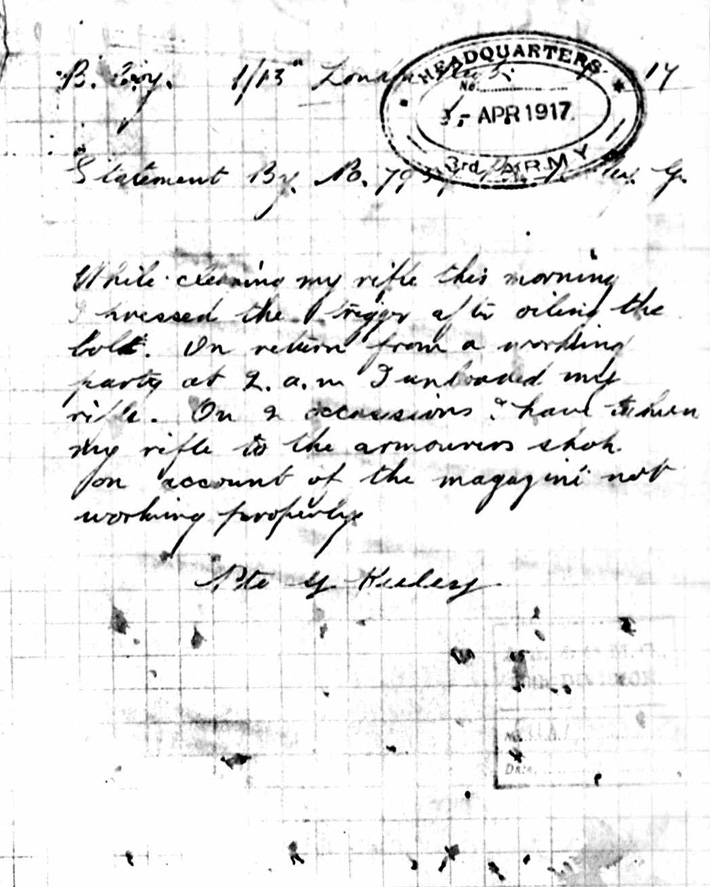 B. Coy. 1/13th London 17
HEADQUARTERS
No.
5- APR 1917.
3rd ARMY
Statement By. No. G.
While cleaning my rifle this morning
I pressed the trigger after oiling the
bolt. On return from a working
party at 2. a.m I unloaded my
rifle. On 2 occassions I have taken
my rifle to the armourers shop
on account of the magazine not
working properly
Pte G Keeley
No.
Date